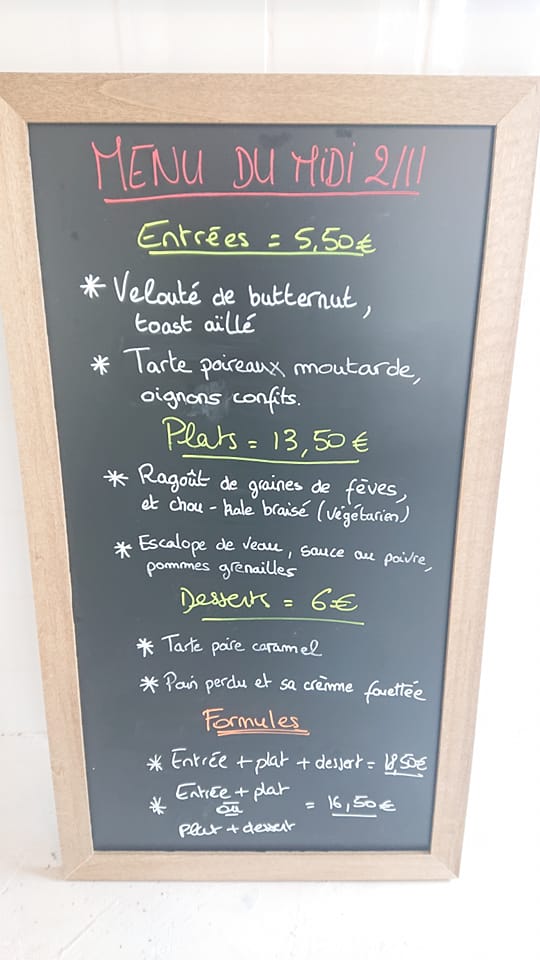 MENU DU MIDI 2/11
Entrées = 5,50€
* Velouté de butternut,
toast aïllé
* Tarte poireaux moutarde,
oignons confits.
Plats = 13,50€
* Ragoût de graines de fèves,
et chou-kale braisé (végétarien)
* Escalope de veau, sauce au poivre,
pommes grenailles
Desserts = 6€
* Tarte poire caramel
* Pain perdu et sa crème fouettée
Formules
* Entrée + plat + dessert = 18,50€
* Entrée + plat
ou = 16,50€
plat + dessert